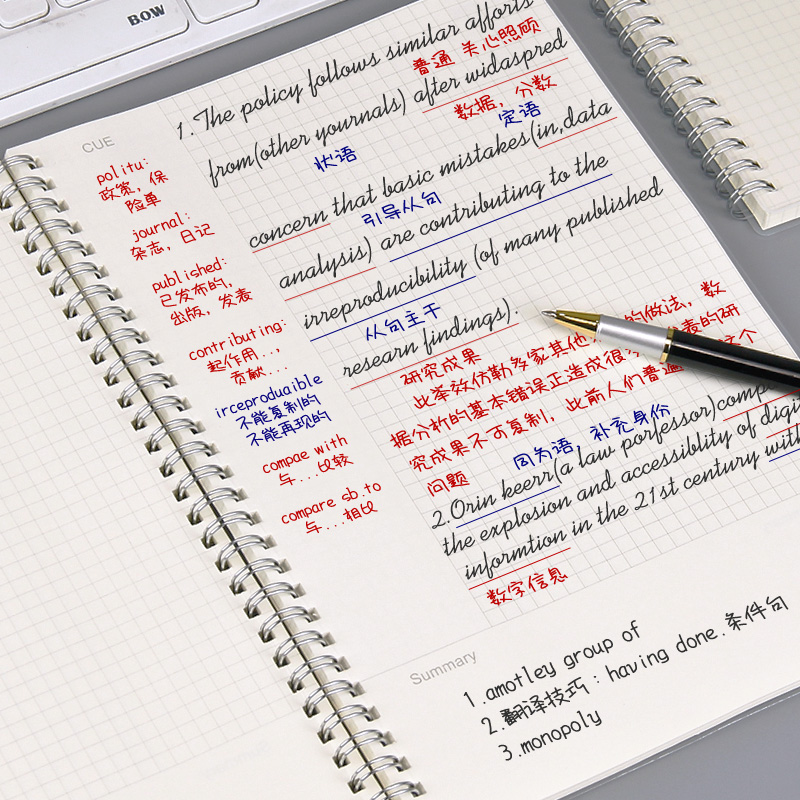 BOW
CUE
politu:
政策，保
险单
journal:
杂志，日记
published:
已发布的，
出版，发表
contributing:
起作用...，
贡献...
irceproduaible
不能复制的
不能再现的
compae with
与...比较
compare sb.to
与...相比
1.The policy follows similar afforts
普通 关心照顾
from(other yournals) after widaspred
数据，分数
状语 定语
concern that basic mistakes(in,data
引导从句
analysis) are contributing to the
irreproducibility (of many published
从句主干
researn findings).
研究成果
此举效仿勒多家其他 的做法，数
据分析的基本错误正造成很 表的研
究成果不可复制，此前人们普遍 这个
问题
同为语，补充身份
2.Orin keerr(a law porfessor)comp
the explosion and accessiblity of digi
informtion in the 21st century with
数字信息
Summary
1.amotley group of
2.翻译技巧：having done.条件句
3.monopoly